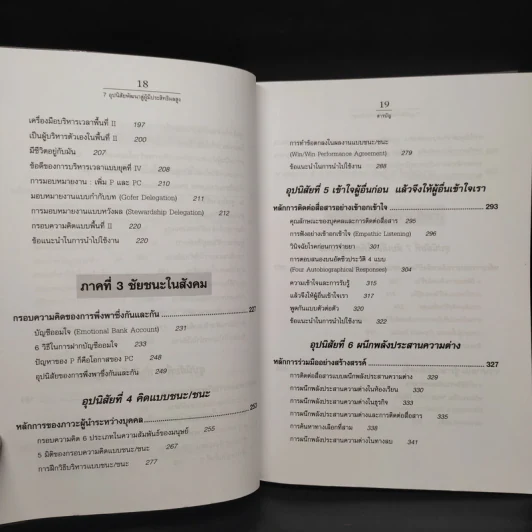 18
7 อุปนิสัยพัฒนาสู่ผู้มีประสิทธิผลสูง
เครื่องมือบริหารเวลาพื้นที่ II 197
เป็นผู้บริหารตัวเองในพื้นที่ II 200
มีชีวิตอยู่กับมัน 207
ข้อดีของการบริหารเวลาแบบยุคที่ IV 208
การมอบหมายงาน : เพิ่ม P และ PC 210
มอบหมายงานแบบกำกับบท (Gofer Delegation) 211
การมอบหมายงานแบบหวังผล (Stewardship Delegation) 212
กรอบความคิดแบบพื้นที่ II 220
ข้อแนะนำในการนำไปใช้งาน 220
ภาคที่ 3 ชัยชนะในสังคม
กรอบความคิดของการพึ่งพาซึ่งกันและกัน 227
บัญชีออมใจ (Emotional Bank Account) 231
6 วิธีในการฝากบัญชีออมใจ 233
ปัญหาของ P ก็คือโอกาสของ PC 248
อุปนิสัยของการพึ่งพาซึ่งกันและกัน 249
อุปนิสัยที่ 4 คิดแบบชนะ/ชนะ
หลักการของภาวะผู้นำระหว่างบุคคล 250
กรอบความคิด 6 ประเภทในความสัมพันธ์ของมนุษย์ 255
5 มิติของกรอบความคิดแบบชนะ/ชนะ 267
การฝึกวิธีบริหารแบบชนะ/ชนะ 277
19
สารบัญ
การทำข้อตกลงในผลงานแบบชนะ/ชนะ
(Win/Win Performance Agreement) 279
ข้อแนะนำในการนำไปใช้งาน 288
อุปนิสัยที่ 5 เข้าใจผู้อื่นก่อน แล้วจึงให้ผู้อื่นเข้าใจเรา
หลักการติดต่อสื่อสารอย่างเข้าอกเข้าใจ 293
คุณลักษณะของบุคคลและการติดต่อสื่อสาร 295
การฟังอย่างเข้าอกเข้าใจ (Empathic Listening) 296
วินิจฉัยโรคก่อนการจ่ายยา 301
การตอบสนองบนอัตชีวประวัติ 4 แบบ
(Four Autobiographical Responses) 304
ความเข้าใจและการรับรู้ 315
แล้วจึงให้ผู้อื่นเข้าใจเรา 317
พูดกันแบบตัวต่อตัว 320
ข้อแนะนำในการนำไปใช้งาน 322
อุปนิสัยที่ 6 ผนึกพลังประสานความต่าง
หลักการร่วมมืออย่างสร้างสรรค์ 327
การติดต่อสื่อสารแบบผนึกพลังประสานความต่าง 329
การผนึกพลังประสานความต่างในห้องเรียน 330
การผนึกพลังประสานความต่างในธุรกิจ 333
การผนึกพลังประสานความต่างและการติดต่อสื่อสาร 335
การค้นหาทางเลือกที่สาม 338
การผนึกพลังประสานความต่างในทางลบ 341